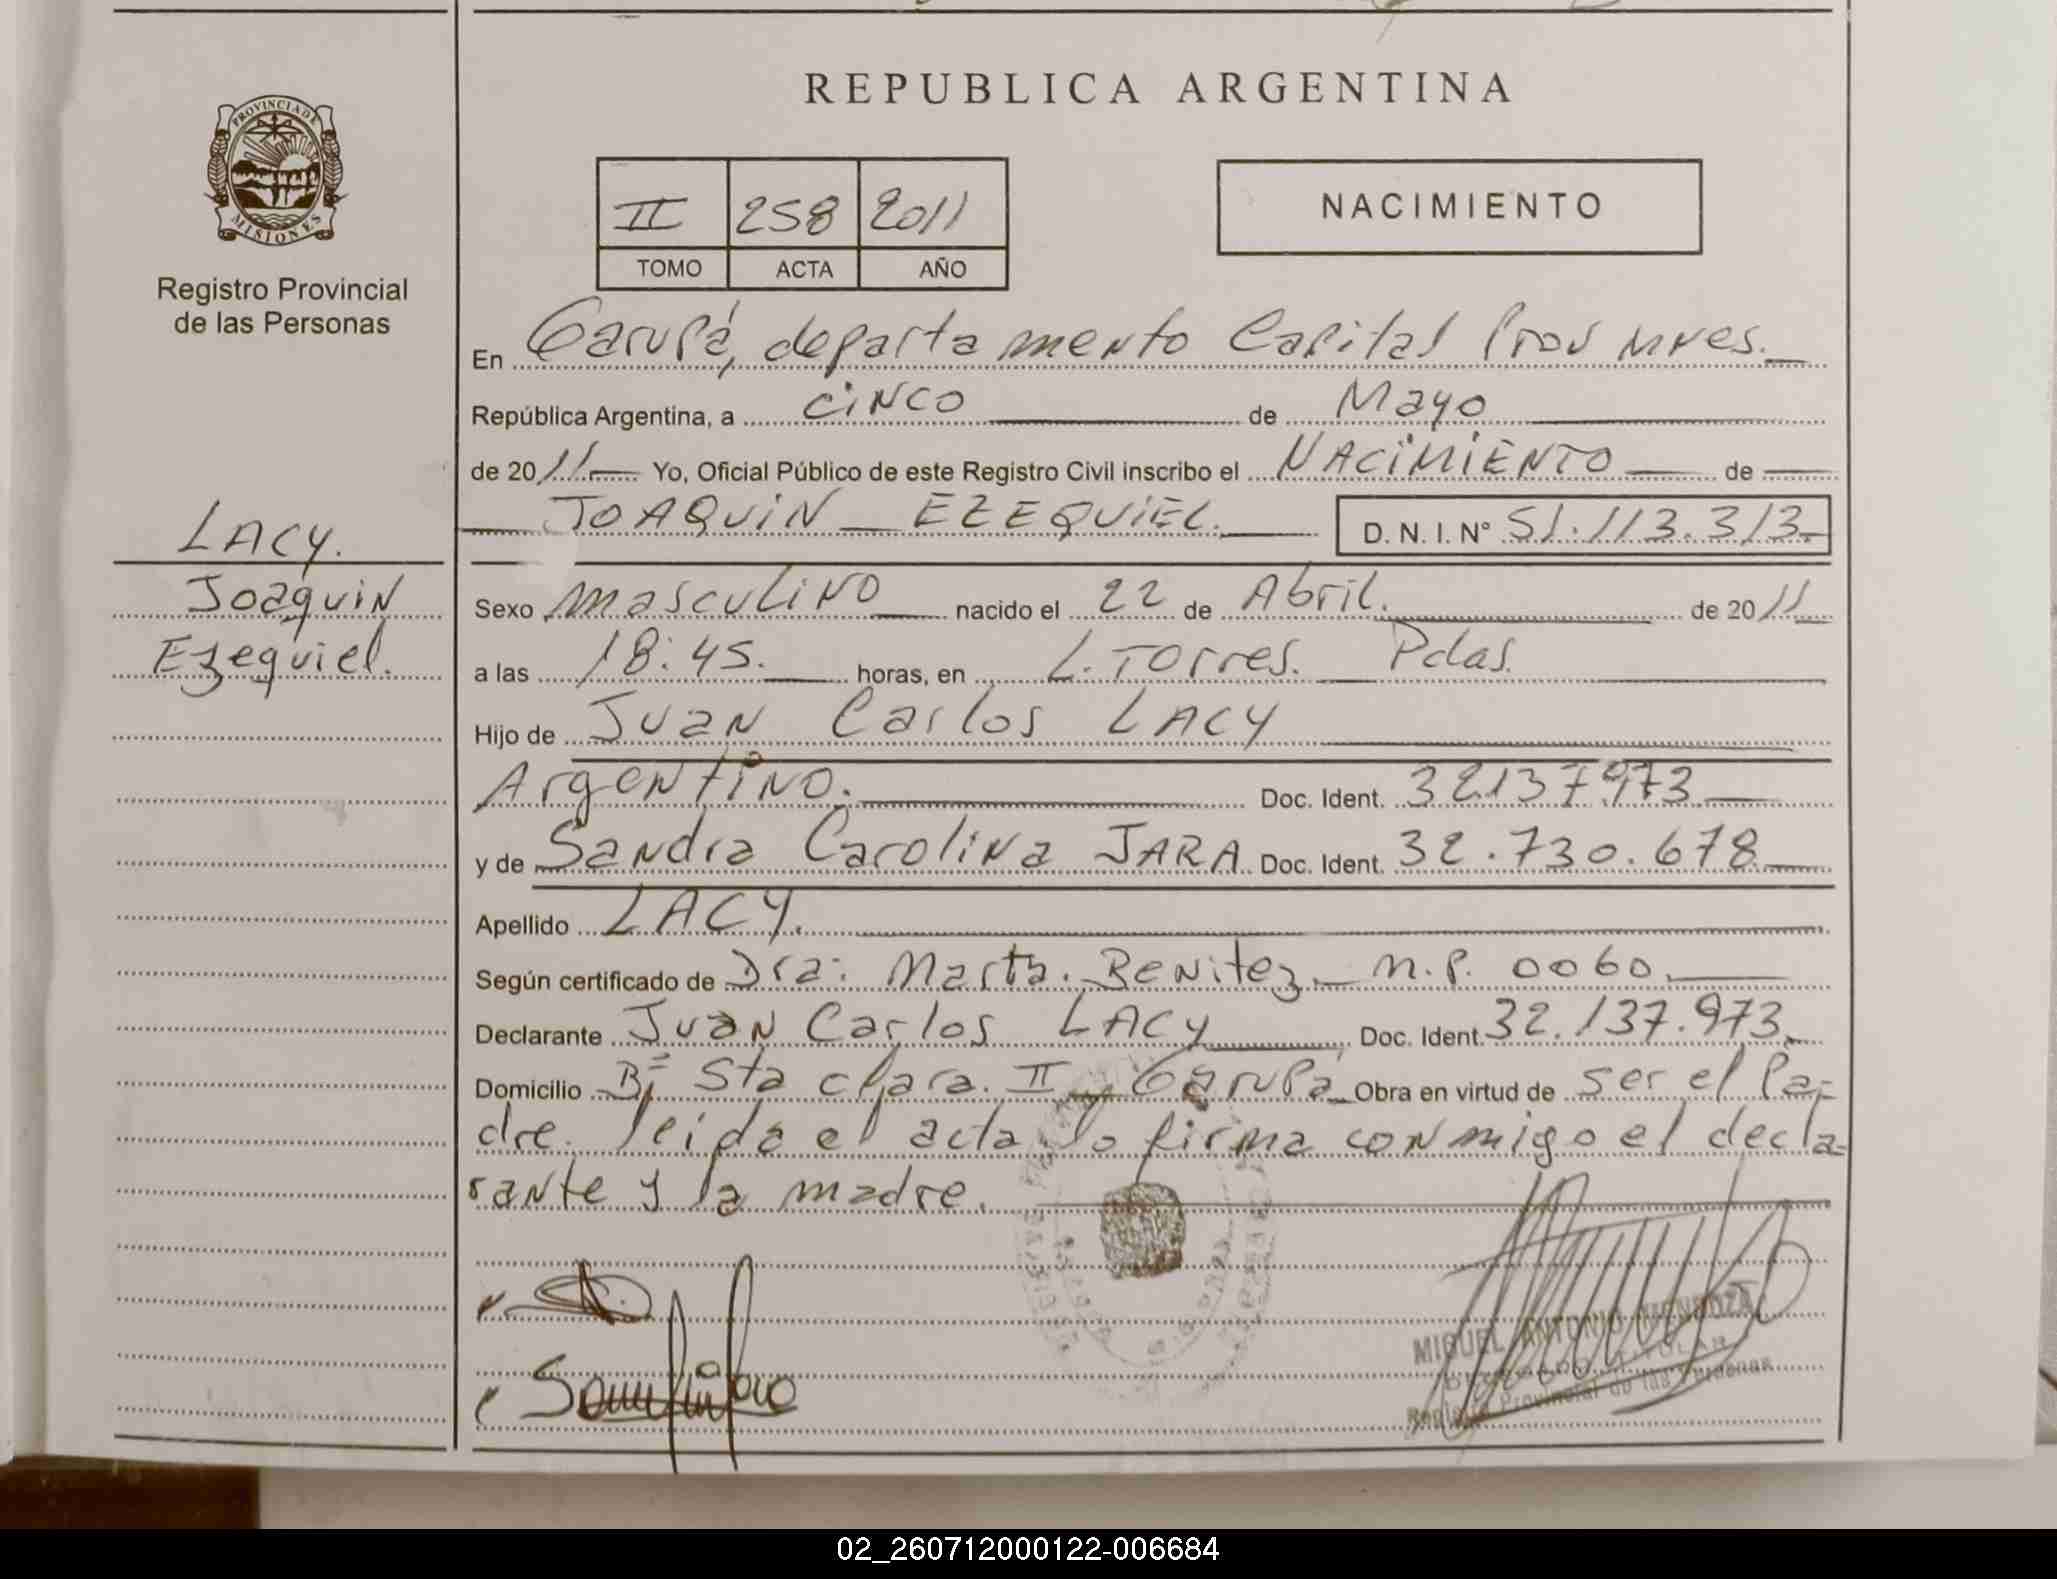 REPUBLICA ARGENTINA
PROVINCIA DE
MISIONES
Registro Provincial
de las Personas
II 258 2011
TOMO ACTA AÑO
NACIMIENTO
En Garupá, departamento Capital Prov Mnes.
República Argentina, a cinco de Mayo
de 2011 Yo, Oficial Público de este Registro Civil inscribo el NACIMIENTO de
JOAQUIN EZEQUIEL. D. N. I. N° 51.113.313.
LACY.
Joaquin
Ezequiel.
Sexo masculino nacido el 22 de Abril. de 2011
a las 18:45. horas, en L. Torres. Pdas.
Hijo de Juan Carlos LACY
Argentino. Doc. Ident. 32137973
y de Sandra Carolina JARA Doc. Ident. 32.730.678
Apellido LACY.
Según certificado de Dra: Marta. Benitez M.P. 0060.
Declarante Juan Carlos LACY Doc. Ident. 32.137.973.
Domicilio B° Sta clara. II Garupá Obra en virtud de ser el Pa-
dre. leida el acta la firma conmigo el decla-
rante y la madre.
MIGUEL ANTONIO MENDOZA
TITULAR
Registro Provincial de las Personas
02_260712000122-006684